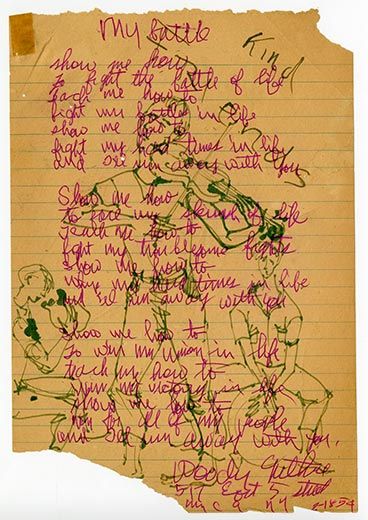 My Battle
Kind
show me how
to fight the battle of life
teach me how to
fight my battles in life
show me how to
fight my hard times in life
and I'll run away with you
Show me how
to save my of life
Teach me how to
fight my troublesome fights
Show me how to
my hard times in life
and I'll run away with you
Show me how to
To win my union in life
teach my how to
win my victory in life
show me how to
run for all of my people
and I'll run away with you.
Woody Guthrie
517 East 5 street
my c n y 2-18-54